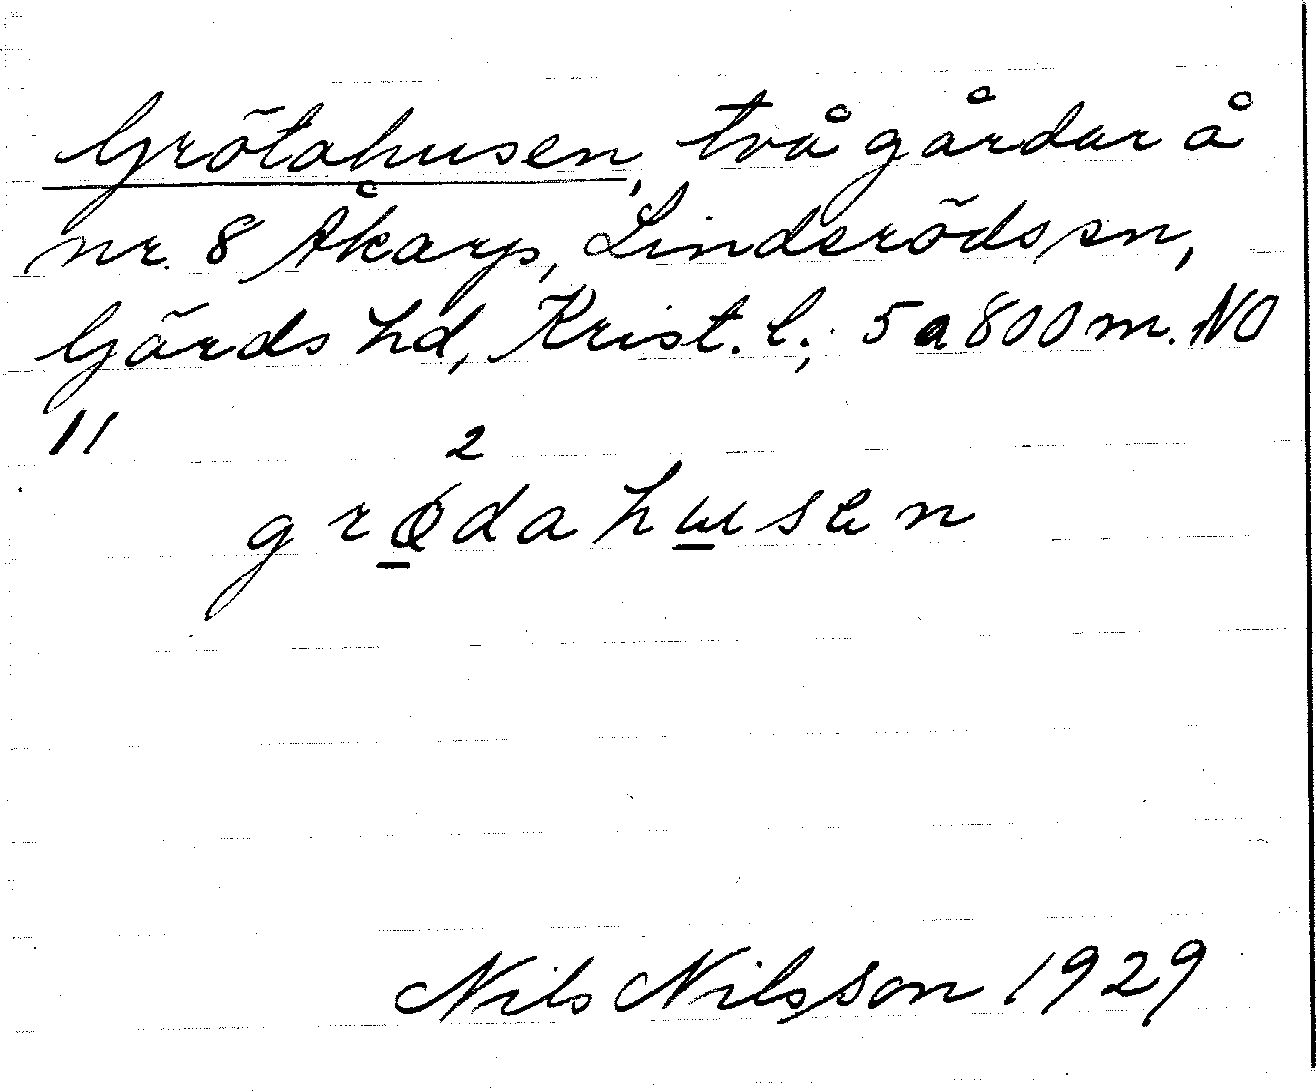 Grötahusen, två gårdar å
nr. 8 Åkarp, Linderöds sn,
Gärds hd, Krist. l.; 5 a 800 m. NO
11
2
grødahusen
Nils Nilsson 1929